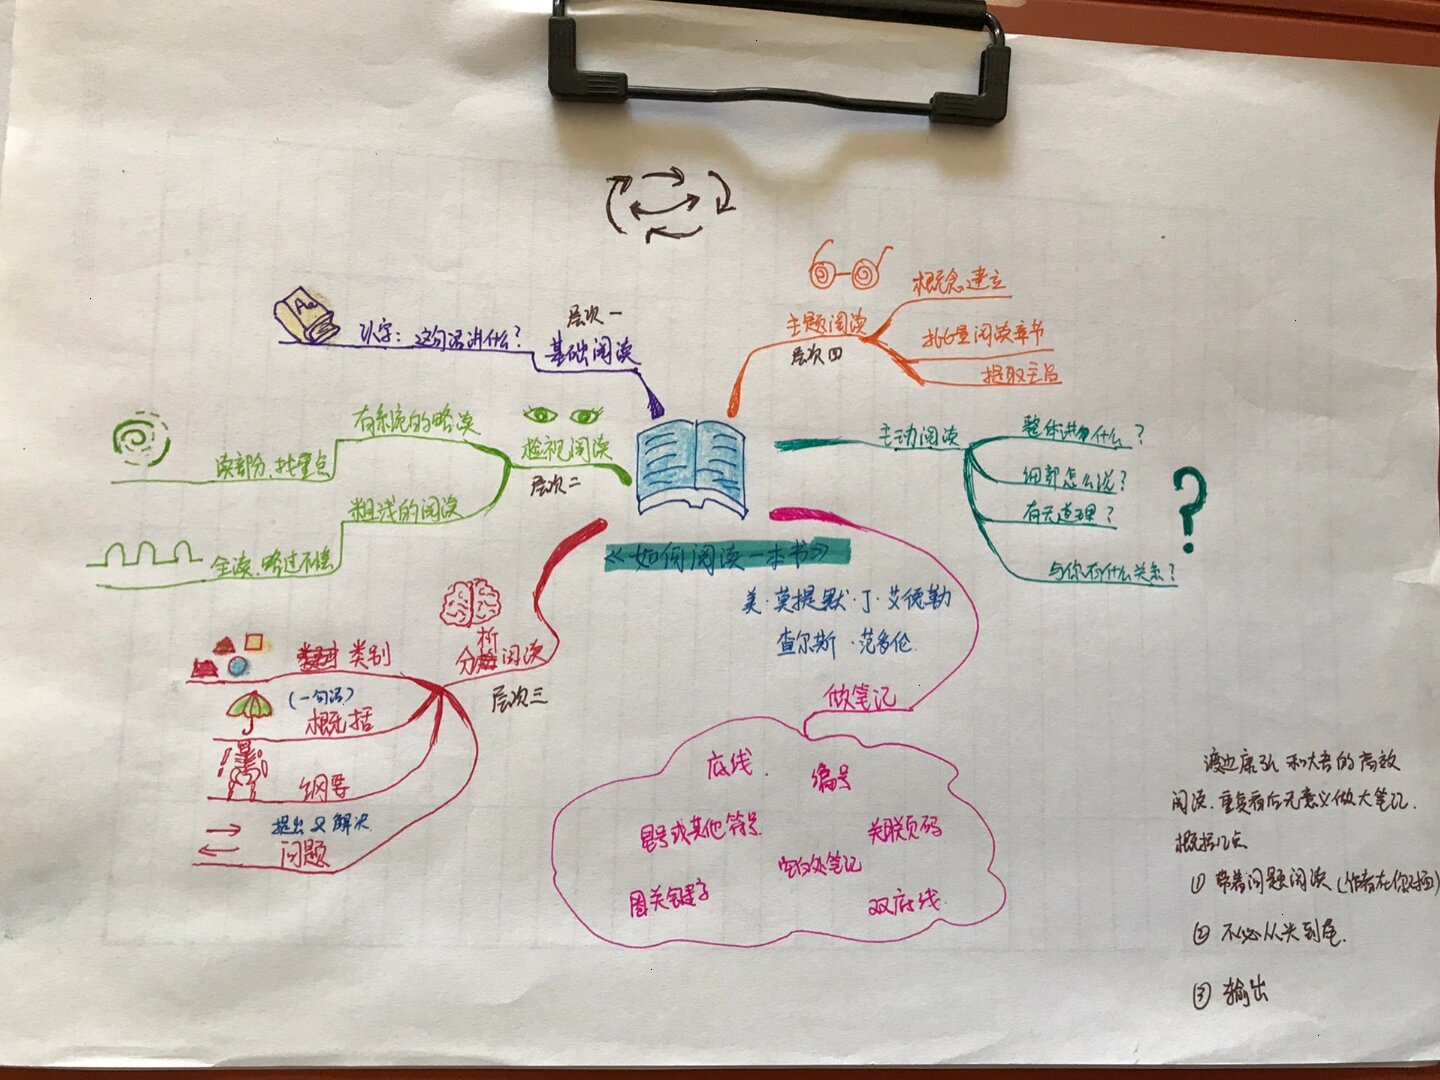 Aa
识字：这句话讲什么？
层次一
基础阅读
主题阅读
层次四
概念建立
批量阅读章节
提取主旨
有系统的略读
读部分、找重点
检视阅读
层次二
粗浅的阅读
全读、略过不懂
主动阅读
整体讲什么？
细部怎么说？
有无道理？
与你有什么关系？
?
《如何阅读一本书》
美·莫提默·J·艾德勒
查尔斯·范多伦
析
分 阅读
层次三
类别
(一句话)
概括
纲要
提出又解决
问题
做笔记
底线
编号
星号或其他符号
关联页码
空白处笔记
圈关键字
双底线
渡边康弘 和大吾的高效
阅读.重复看后无意义做大笔记.
概括几点
① 带着问题阅读(作者在你对面)
② 不必从头到尾.
③ 输出